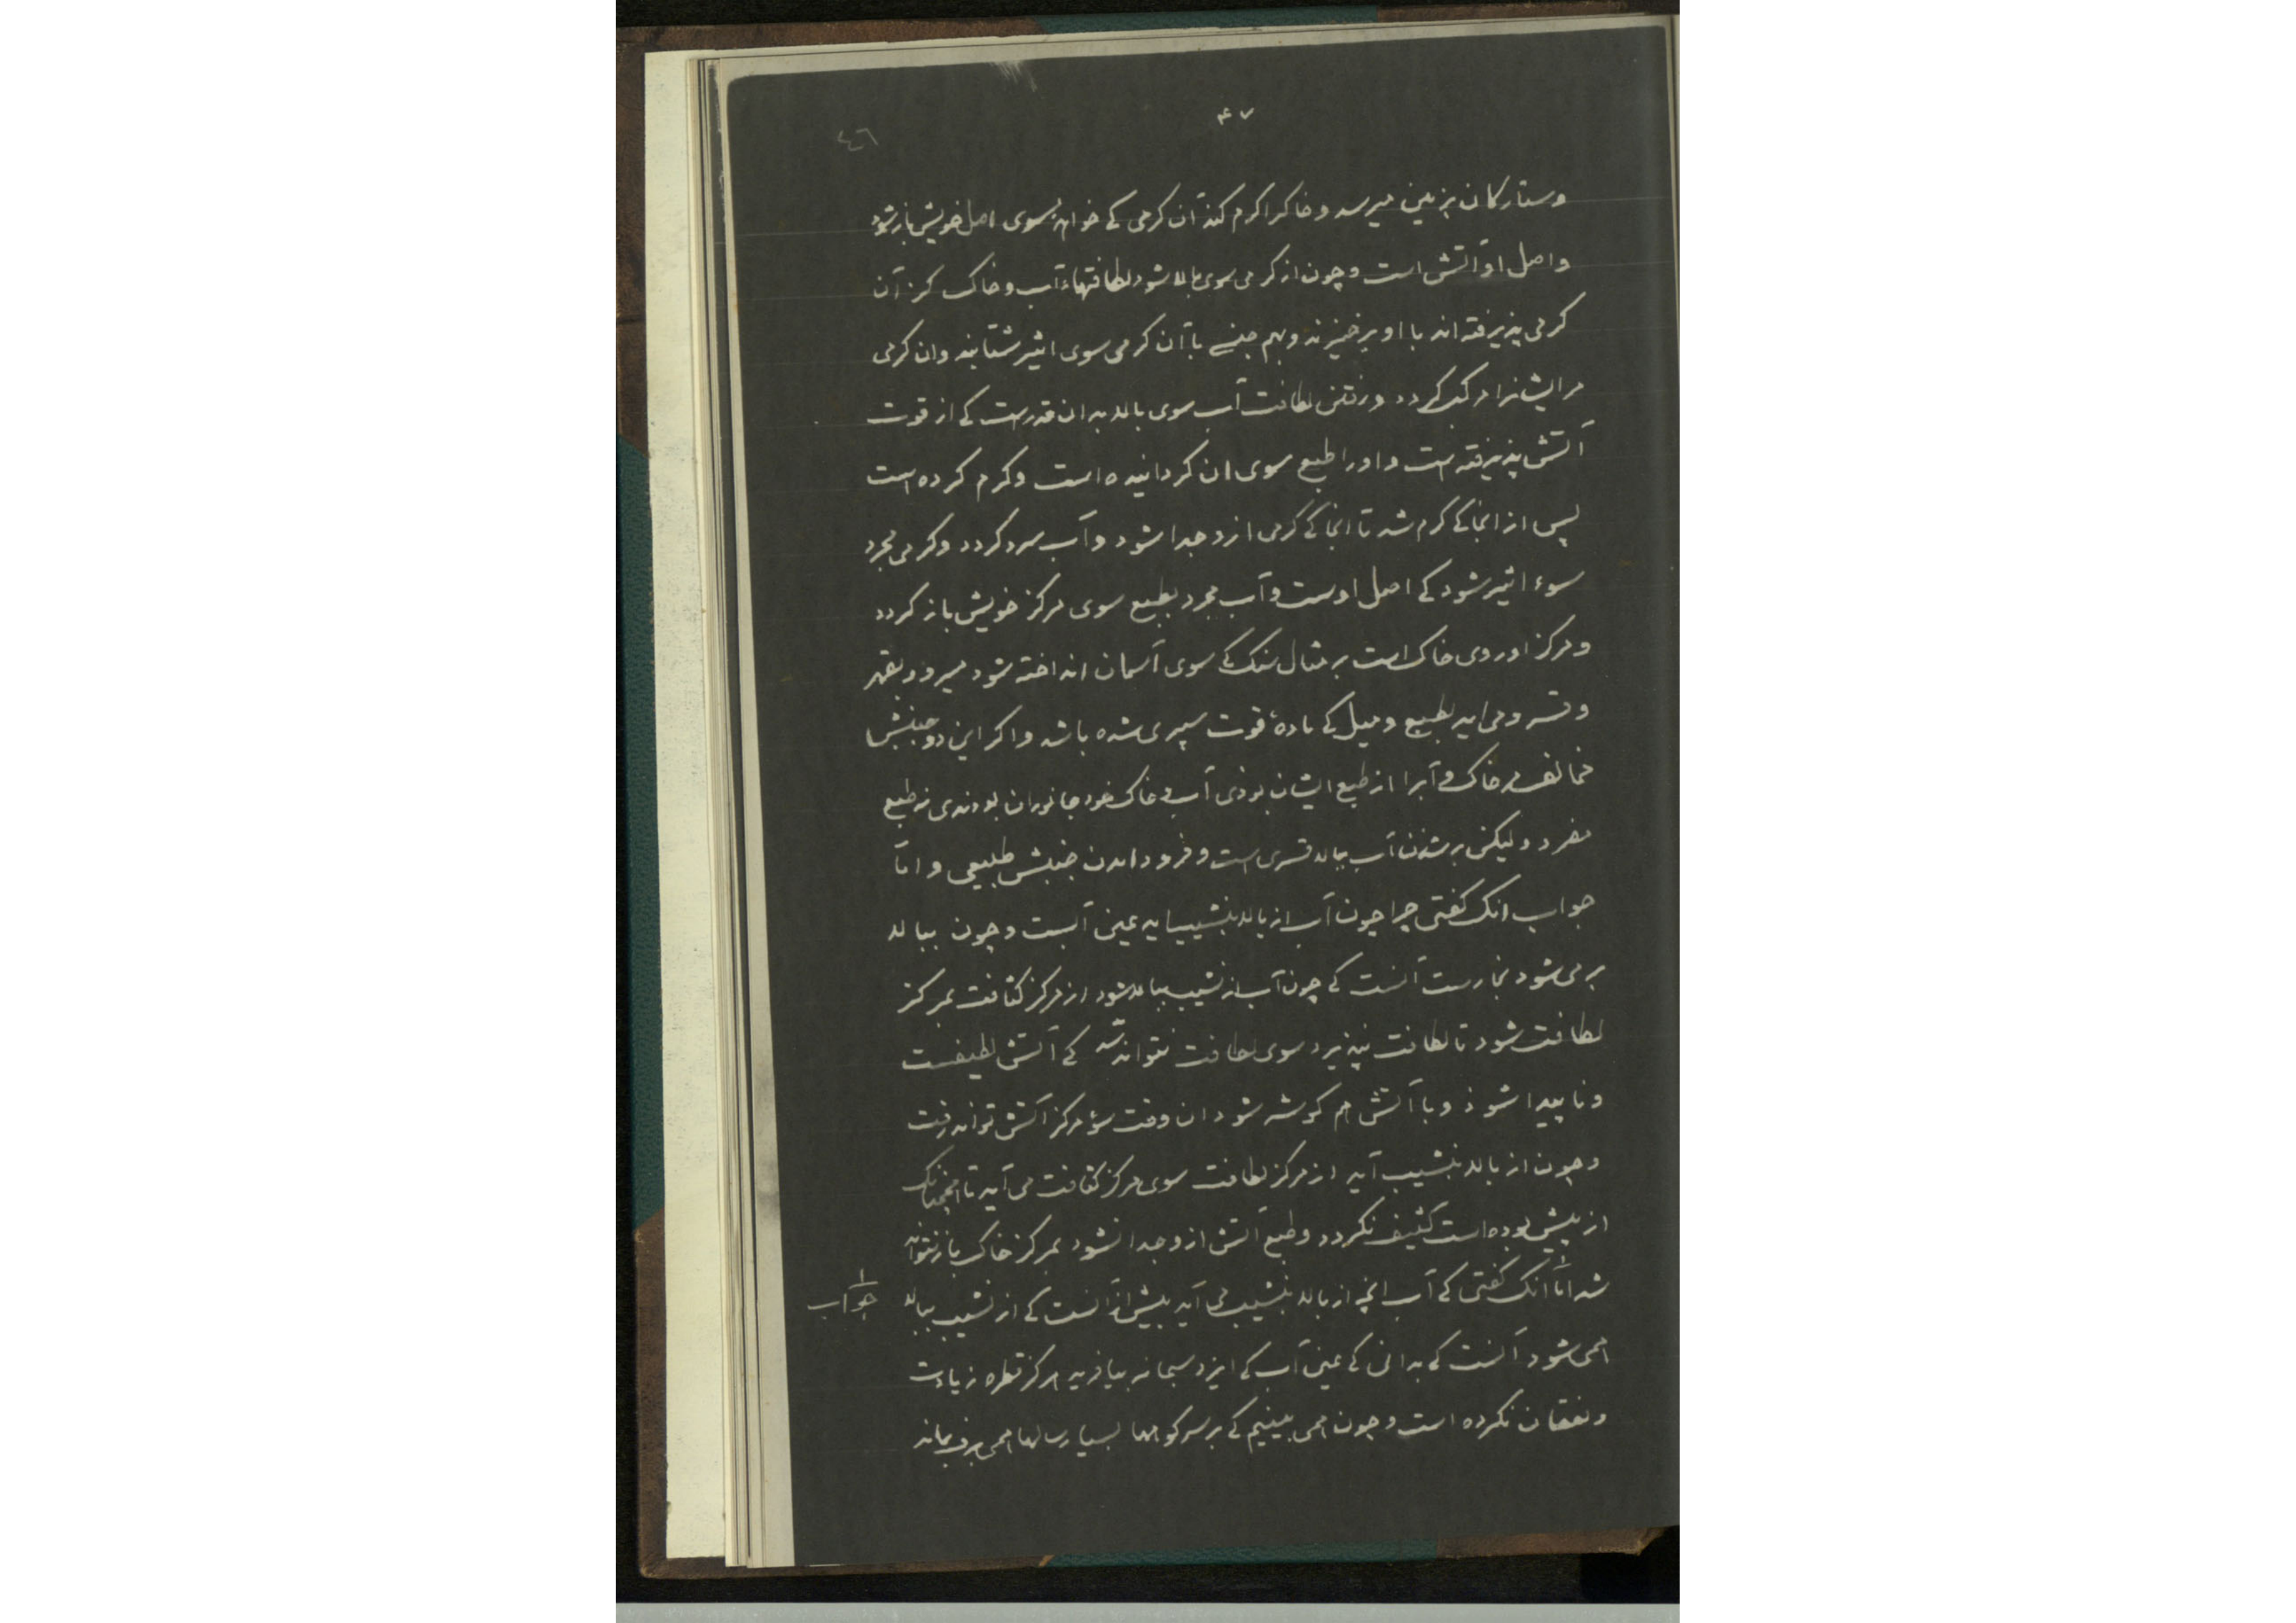 ۴۷
٤٦
وستارکان بزمین میرسد و خاکرا کرم کند آن کرمی کے خواهد بسوی اصل خویش باز شود
واصل او آتش است و چون از کرمی سوی بالا شود لطافتهاء آب و خاک کز آن
کرمی پذیرفته اند با او برخیزند و بهم جنسے با آن کرمی سوی اثیر شتابند وان کرمی
مر ایشانرا مرکب کردد و رفتن لطافت آب سوی بالا بدان قدرست کے از قوت
آتش پذیرفته است و اورا طبع سوی ان کردانیده است و کرم کرده است
پس از انجا کے کرم شد تا انجا کے کرمی ازو جدا شود و آب سرد کردد و کرمی مجرد
سوء اثیر شود کے اصل اوست و آب مجرد بطبع سوی مرکز خویش باز کردد
و مرکز او روی خاک است بر مثال سنک کے سوی آسمان انداخته شود میرود بقهر
و قسر و می اید بطبع و میل کے مادهٔ قوت سپری شده باشد واکر این دو جنبش
مخالف مر خاک و آبرا از طبع ایشان بوذی آب و خاک خود جانوران بودندی نه طبع
مفرد و لیکن بر شدن آب ببالا قسری است و فرود امدن جنبش طبیعی و امّا
جواب انک کفتی چرا چون آب از بالا بنشیب اید عین آبست و چون ببالا
بر می شود بخارست آنست کے چون آب از نشیب ببالا شود از مرکز کثافت بمرکز
لطافت شود تا لطافت نپذیرد سوی لطافت نتواند شد کے آتش لطیفست
و ناپیدا شوذ و با آتش هم کوشه شود ان وقت سؤ مرکز آتش تواند رفت
و چون از بالا بنشیب آید از مرکز لطافت سوی مرکز کثافت می آید تا همچنانک
از پیش بوده است کثیف نکردد و طبع آتش ازو جدا نشود بمرکز خاک باز نتواند
شد امّا انک کفتی کے آب انچه از بالا بنشیب می آید بیش از آنست کے از نشیب ببالا
جواب
همی شود آنست کے بدانی کے عین آب کے ایزد سبحانه بیافرید هرکز قطره زیادت
و نقصان نکرده است و چون همی بینیم کے بر سر کوهها بسیار سالها همی برف بماند